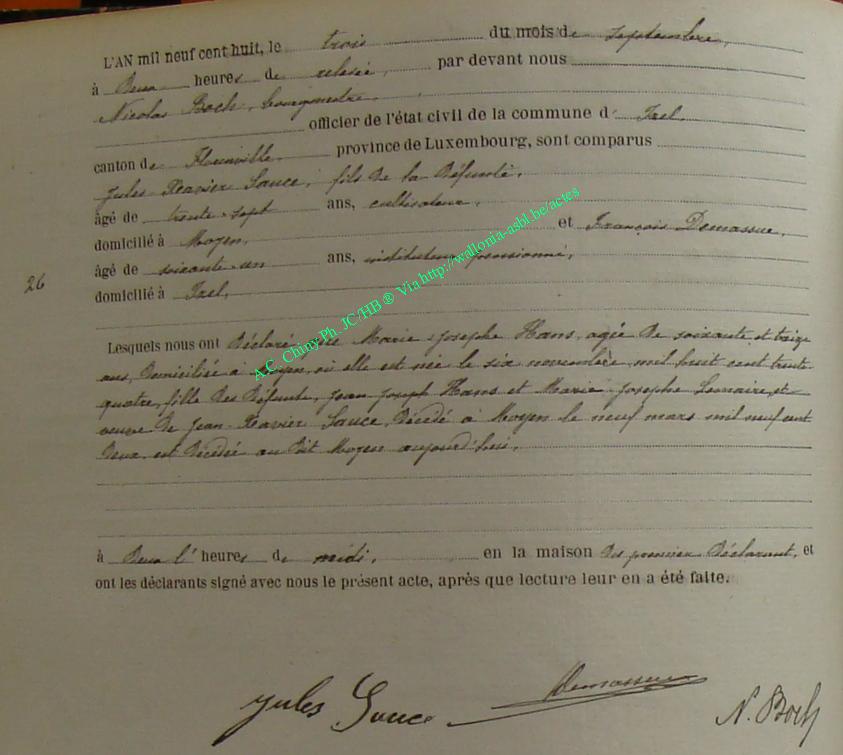 L'AN mil neuf cent huit, le trois du mois de septembre,
à Deux heures de relevée, par devant nous
Nicolas Boch, bourgmestre,
officier de l'état civil de la commune d' Izel,
canton de Florenville province de Luxembourg, sont comparus
Jules Xavier Sauce, fils de la Défunte,
âgé de trente-sept ans, cultivateur,
domicilié à Moyen, et François Demassue,
âgé de soixante-un ans, instituteur pensionné,
26
domicilié à Izel,
Lesquels nous ont Déclaré que Marie-Josèphe Hans, agée de soixante et treize
ans, Domiciliée à Moyen, où elle est née le six novembre mil huit cent trente-
quatre, fille des Défunts, Jean-Joseph Hans et Marie-Josèphe Lemaire, et
veuve de Jean-Xavier Sauce, Décédé à Moyen le neuf mars mil neuf cent
Deux, est Décédée au Dit Moyen aujourd'hui,
à heures de midi, en la maison Du premier Déclarant, et
ont les déclarants signé avec nous le présent acte, après que lecture leur en a été faite.
Jules Sauce Demassue N. Boch
A.C. Chiny Ph. JC/HB ® Via http://wallonia-asbl.be/actes